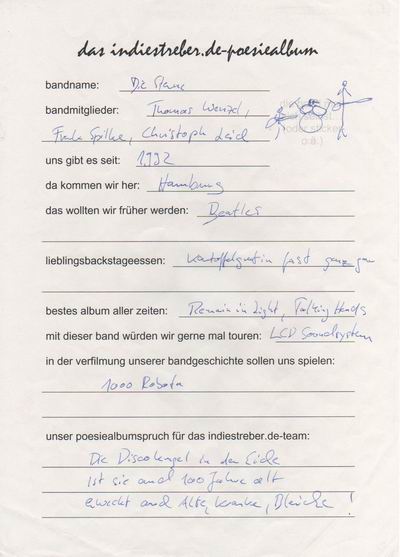 das indiestreber.de-poesiealbum
bandname: Die Sterne
bandmitglieder: Thomas Wenzel,
Frank Spilker, Christoph Leich
uns gibt es seit: 1992
da kommen wir her: Hamburg
das wollten wir früher werden: Beatles
lieblingsbackstageessen: Kartoffelgratin fast ganz gar
bestes album aller zeiten: Remain in Light, Talking Heads
mit dieser band würden wir gerne mal touren: LCD Soundsystem
in der verfilmung unserer bandgeschichte sollen uns spielen:
1000 Robota
unser poesiealbumspruch für das indiestreber.de-team:
Die Discokugel in der Ecke
Ist sie auch 100 Jahre alt
erweckt auch Alte, kranke, Bleiche!